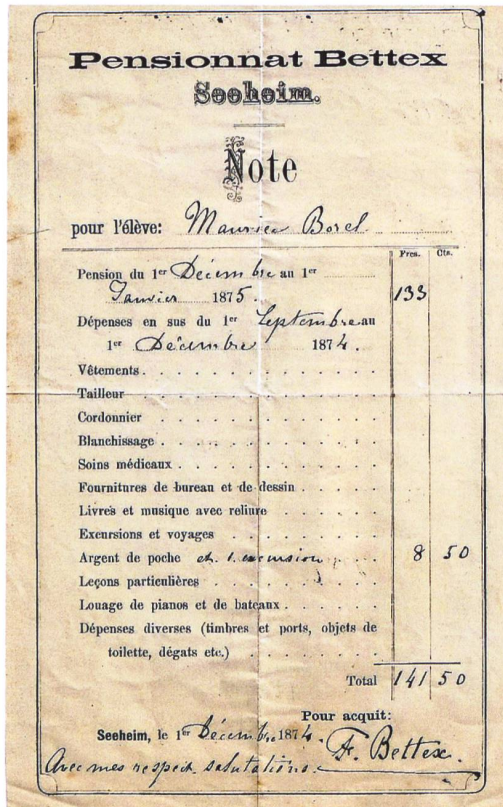 Pensionnat Bettex
Seeheim.
Note
pour l'élève: Maurice Borel
Frcs. Cts.
Pension du 1er Décembre au 1er
Janvier 1875. 133
Dépenses en sus du 1er Septembre au
1er Décembre 1874.
Vêtements
Tailleur
Cordonnier
Blanchissage
Soins médicaux
Fournitures de bureau et de dessin
Livres et musique avec reliure
Excursions et voyages
Argent de poche et 1 excursion 8 50
Leçons particulières
Louage de pianos et de bateaux
Dépenses diverses (timbres et ports, objets de
toilette, dégats etc.)
Total 141 50
Pour acquit:
Seeheim, le 1er Décembre 1874. F. Bettex.
Avec mes respect. salutations.